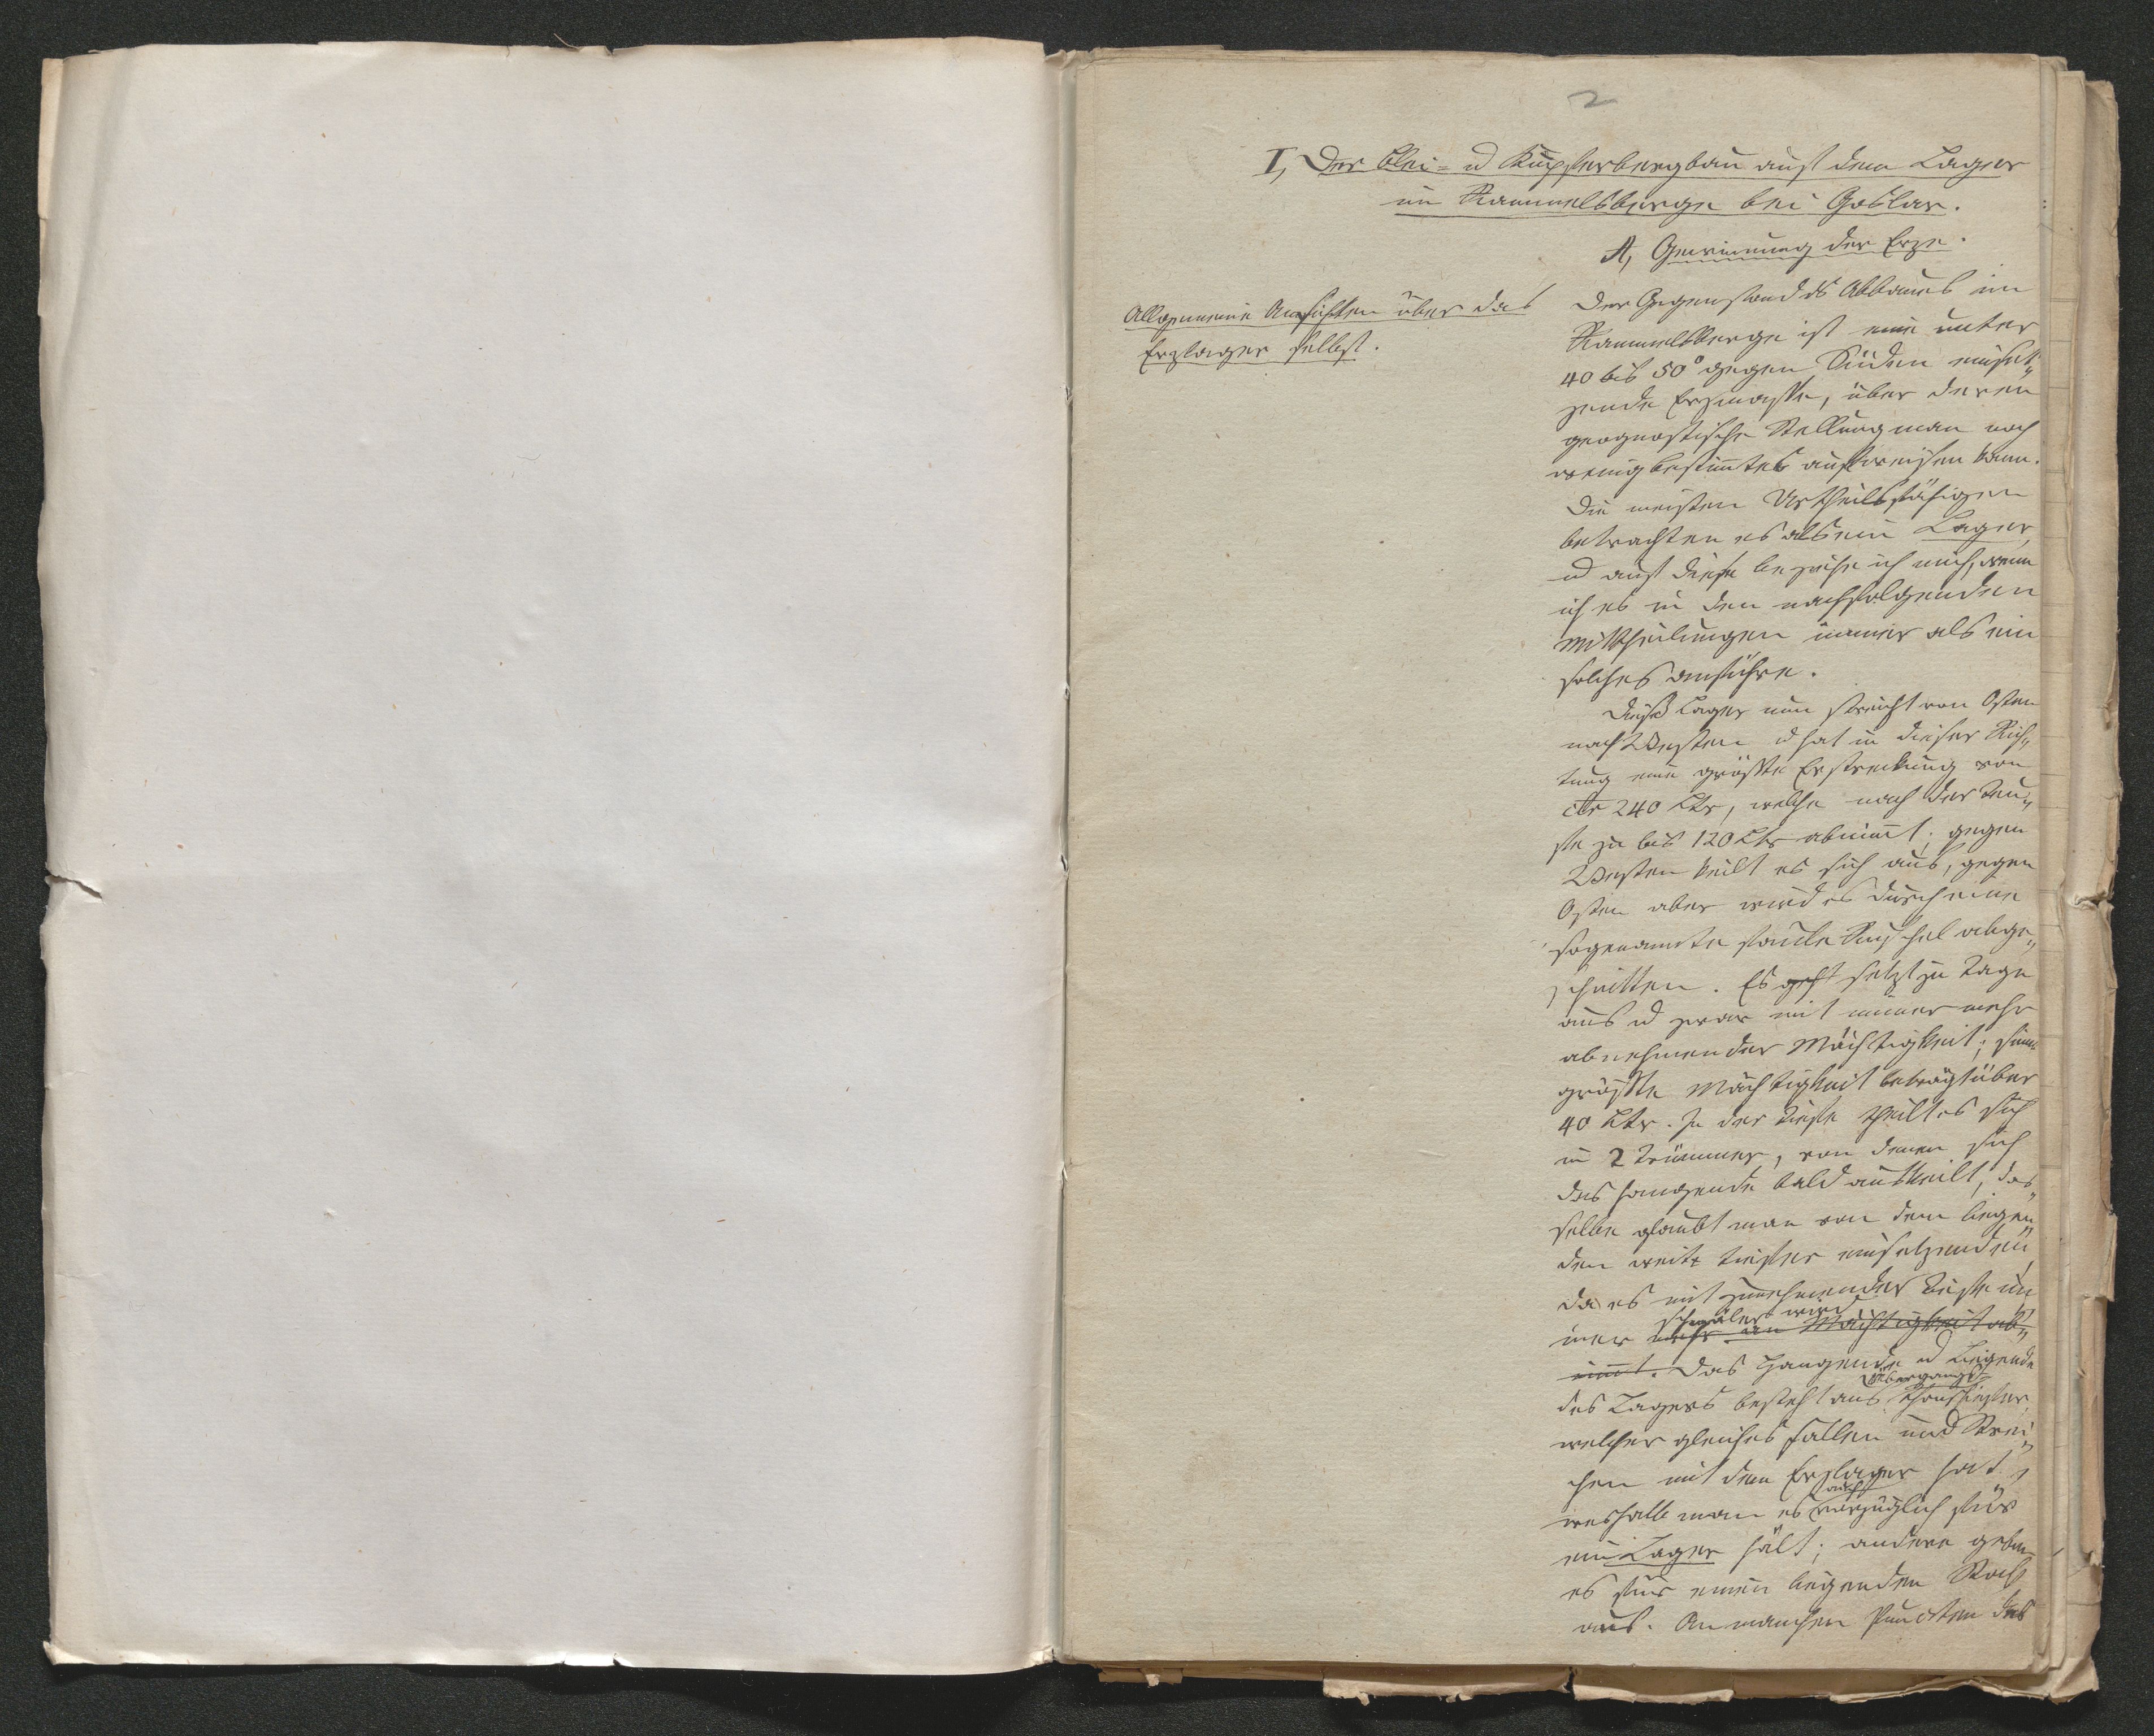 2
I, Der Blei- u Kupferbergbau auf dem Lager
im Rammelsberge bei Goslar.
A, Gewinnung der Erze.
Allgemeine Ansichten über das
Erzlager selbst.
Der Gegenstand ds Abbaues im
Rammelsberge ist eine unter
40 bis 50° gegen Süden einfal„
lende Erzmasse, über deren
geognostische Stellung man noch
wenig bestimtes aufweisen kann.
Die meisten Urtheilsfähigen
betrachten es als ein Lager,
u auf diese beziehe ich mich, wenn
ich es in den nachfolgenden
Mittheilungen immer als ein
solches anführe.
Dieß Lager nun streicht von Osten
nach Westen u hat in dieser Rich„
tung eine größte Erstreckung von
240 Ltr, welche nach der Teu„
fe zu bis 120 Ltr abnimt; gegen
Westen keilt es sich aus, gegen
Osten aber wird es durch eine
sogenannte faule Ruschel abge„
schnitten. Es geht setzt zu Tage
aus u zwar mit immer mehr
abnehmender Mächtigkeit; seine
größte Mächtigkeit beträgt über
40 Ltr. In der Tiefe theilt es sich
in 2 Trümmer, von denen sich
das hangende bald auskeilt, das„
selbe glaubt man von dem liegen„
den weiter tiefer einsetzenden,
da es mit zunehmender Tiefe im„
schmäler wird
mer mehr an Mächtigkeit ab„
nimt. Das Hangende u Liegende
Übergangs
des Lagers besteht aus Thonschiefer,
welcher gleiches Fallen und Strei„
chen mit dem Erzlager hat,
auch
weshalb man es vorzüglich für
ein Lager hält; andere geben
es für einen liegenden Stock
aus. An manchen Puncten des